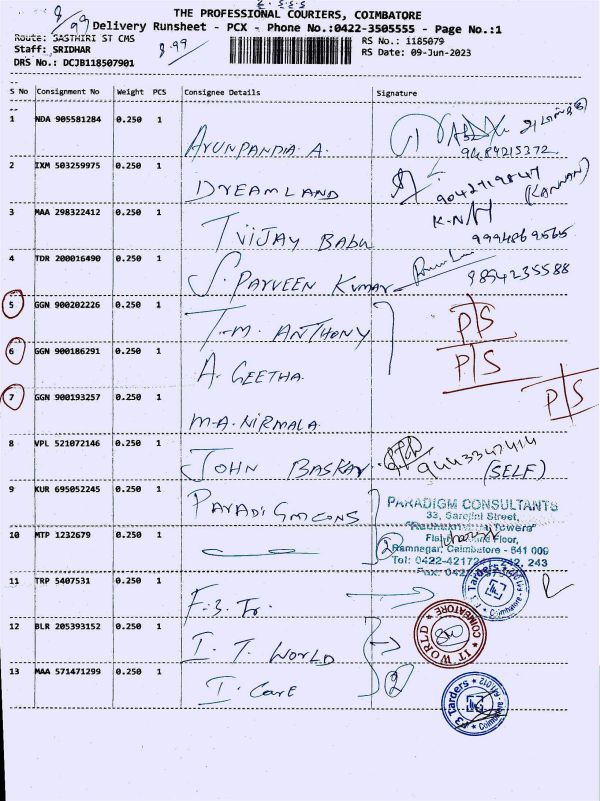 THE PROFESSIONAL COURIERS, COIMBATORE
8/99 Delivery Runsheet - PCX - Phone No.:0422-3505555 - Page No.:1
Route: SASTHIRI ST CMS
RS No.: 1185079
Staff: SRIDHAR
8.99
RS Date: 09-Jun-2023
DRS No.: DCJB118507901
S No Consignment No Weight PCS Consignee Details Signature
1 NDA 905581284 0.250 1 ARUNPANDIA. A.
9489215372
2 IXM 503259975 0.250 1 DREAMLAND
(KANNAN)
3 MAA 298322412 0.250 1 T VIJAY BABU
4 TDR 200016490 0.250 1 S. PARVEEN KUMAR
9854235588
5 GGN 900202226 0.250 1 T.M. ANTHONY P/S
6 GGN 900186291 0.250 1 A. GEETHA. P/S
7 GGN 900193257 0.250 1 M.A. NIRMALA P/S
8 VPL 521072146 0.250 1 JOHN BASKAR. 9443347414
(SELF)
9 KUR 695052245 0.250 1 PARADIGM CONS
PARADIGM CONSULTANTS
33, Sarojini Street,
Towers
Floor,
10 MTP 1232679 0.250 1 2
Ramnagar, Coimbatore - 641 009
Tel: 0422-42172 242, 243
11 TRP 5407531 0.250 1 F.3. Tr.
F3 Tarders Coimbatore
12 BLR 205393152 0.250 1 I. T. WORLD
IT WORLD COIMBATORE
13 MAA 571471299 0.250 1 I. Care 2
F3 Tarders Coimbatore